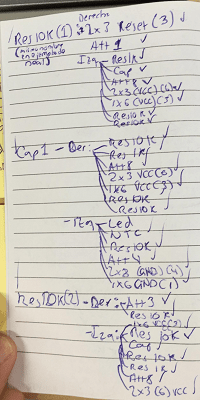 Derecho
Res10K(1): 2x3 Reset(3) ✓
Att 1 ✓
Izq Res1K ✓
Cap ✓
Att8 ✓
2x3 (VCC)(6) ✓
1x6 (VCC)(3) ✓
Res10K ✓
Res10K ✓
Cap1 - Der: Res10K ✓
Res1K ✓
Att8 ✓
2x3 VCC(6) ✓
1x6 VCC(3) ✓
Res10K
Res10K ✓
- Izq Led ✓
NTC ✓
Res10K ✓
Att4 ✓
2x3 (GND)(4) ✓
1x6 GND(1) ✓
Res10K(2) - Der: Att3 ✓
Res10K ✓
1x6 VCC(3) ✓
- Izq: Res10K ✓
Cap ✓
Res10K ✓
Res1K ✓
Att8 ✓
2x3(6) VCC ✓